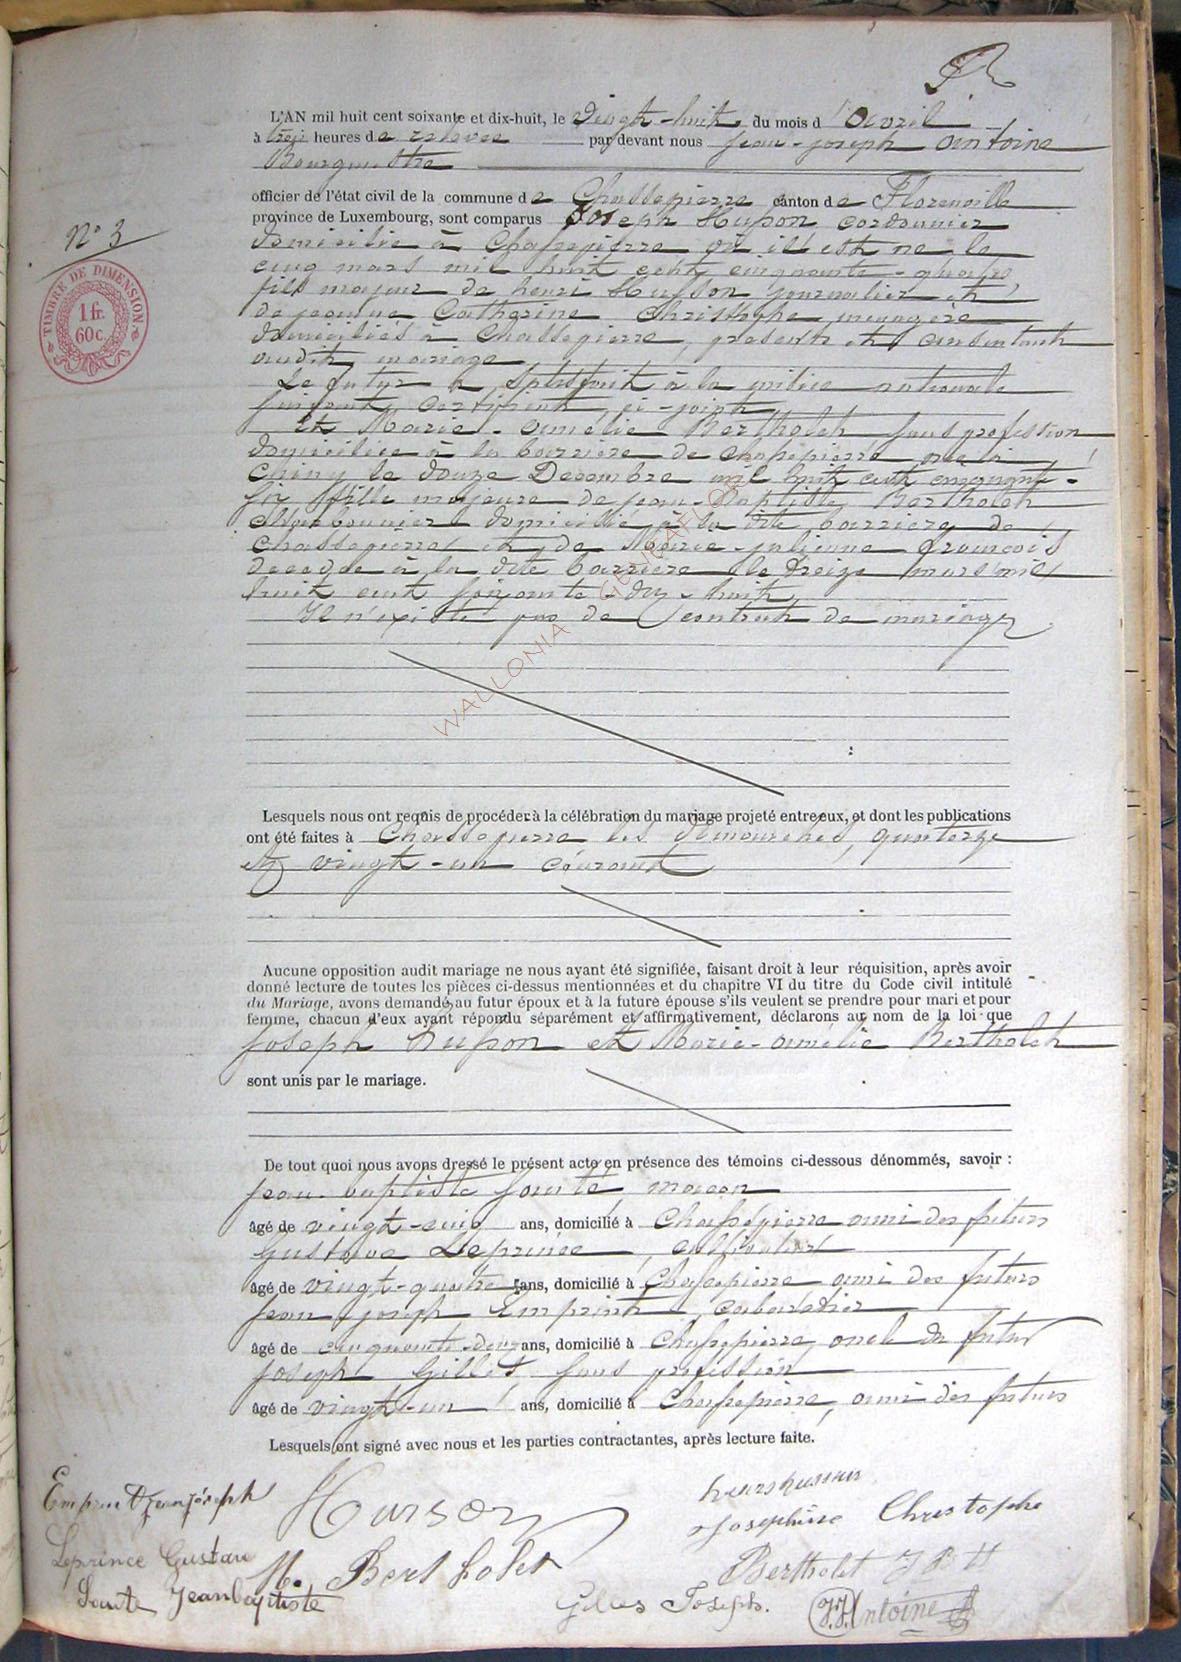 L'AN mil huit cent soixante et dix-huit, le vingt-huit du mois d'avril
à trois heures de relevée par devant nous Jean-joseph Antoine
Bourgmestre
officier de l'état civil de la commune de Chassepierre canton de Florenville
province de Luxembourg, sont comparus Joseph Husson, cordonnier
N° 3
domicilié à Chassepierre où il est né le
cinq mars mil huit cent cinquante-quatre,
TIMBRE DE DIMENSION
1 fr.
60c.
fils majeur de henri Husson journalier et
de jeanne Catherine Christophe menagère
domiciliés à Chassepierre, présents et consentant
audit mariage
Le futur a satisfait à la milice nationale
suivant certificat ci-joint
Et Marie-amélie Bertholet sans profession
domiciliée à la barrière de chassepierre née à
Chiny le douze Decembre mil huit cent cinquante-
six fille majeure de jean-Baptiste Bertholet
charbonnier domicilié à la dite barriere de
Chassepierre et de Marie-julienne françois
décédée à la dite barriere le treize mars mil
huit cent soixante-dix-huit
Il n'existe pas de contrat de mariage
WALLONIA GENEAFLOR
Lesquels nous ont requis de procéder à la célébration du mariage projeté entre eux, et dont les publications
ont été faites à Chassepierre les dimanches, quatorze
et vingt-un courant
Aucune opposition audit mariage ne nous ayant été signifiée, faisant droit à leur réquisition, après avoir
donné lecture de toutes les pièces ci-dessus mentionnées et du chapitre VI du titre du Code civil intitulé
du Mariage, avons demandé au futur époux et à la future épouse s'ils veulent se prendre pour mari et pour
femme, chacun d'eux ayant répondu séparément et affirmativement, déclarons au nom de la loi que
Joseph Husson et Marie-amélie Bertholet
sont unis par le mariage.
De tout quoi nous avons dressé le présent acte en présence des témoins ci-dessous dénommés, savoir :
jean-baptiste Sonté, maçon
âgé de vingt-cinq ans, domicilié à Chassepierre ami des futurs
Gustave Leprince, cultivateur
âgé de vingt-quatre ans, domicilié à Chassepierre ami des futurs
jean joseph Emprint, cabaretier
âgé de cinquante-deux ans, domicilié à Chassepierre, oncle du futur
joseph Gilles sans profession
âgé de vingt-un ans, domicilié à Chassepierre, ami des futurs
Lesquels ont signé avec nous et les parties contractantes, après lecture faite.
Emprint jean joseph Husson henri husson
josephine Christophe
Leprince Gustave M. Bertholet Bertholet J Btt
Jeanbaptiste Gilles Joseph. J.J. Antoine